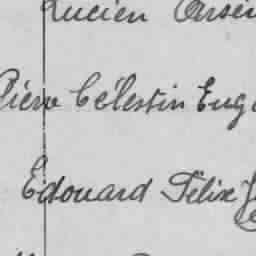 Lucien Arsè
Pierre Célestin Eug
Edouard Félix